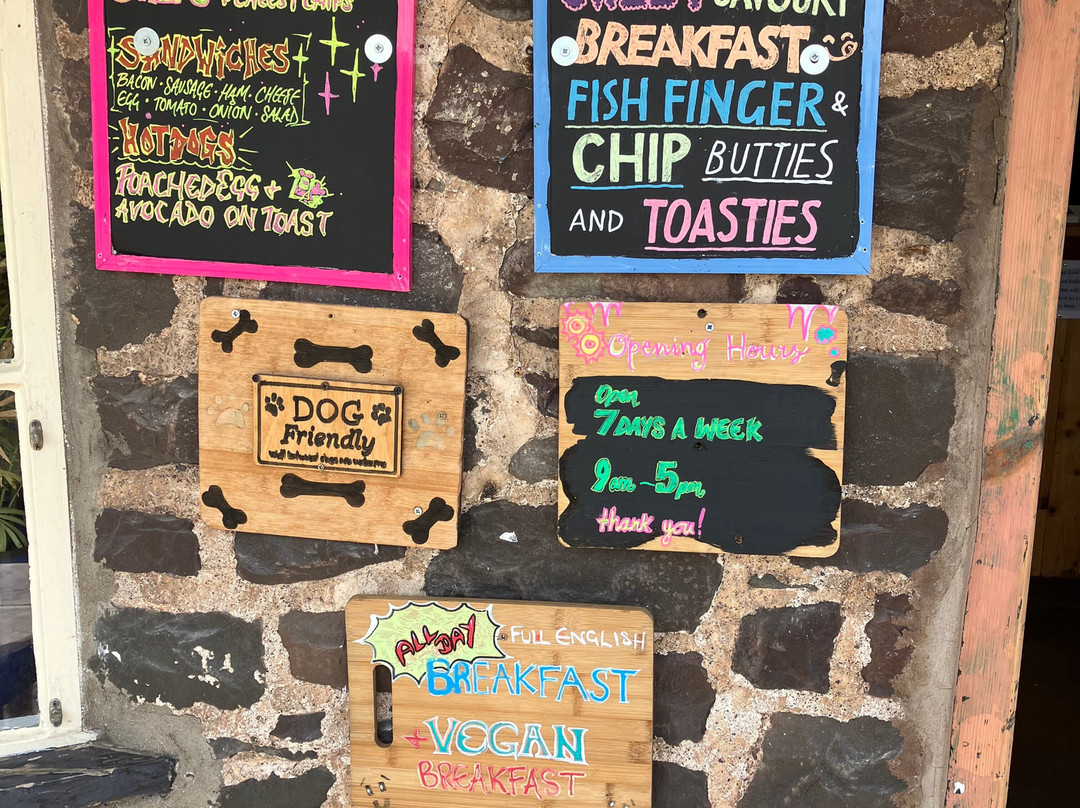 SANDWICHES
BACON · SAUSAGE · HAM · CHEESE
EGG · TOMATO · ONION · SALAD
HOTDOGS
POACHED EGG +
AVOCADO ON TOAST
SAVOURY
BREAKFAST
FISH FINGER &
CHIP BUTTIES
AND TOASTIES
DOG
Friendly
well behaved dogs are welcome
Opening Hours
Open
7 DAYS A WEEK
9am - 5pm
thank you!
ALL DAY FULL ENGLISH
BREAKFAST
+ VEGAN
BREAKFAST